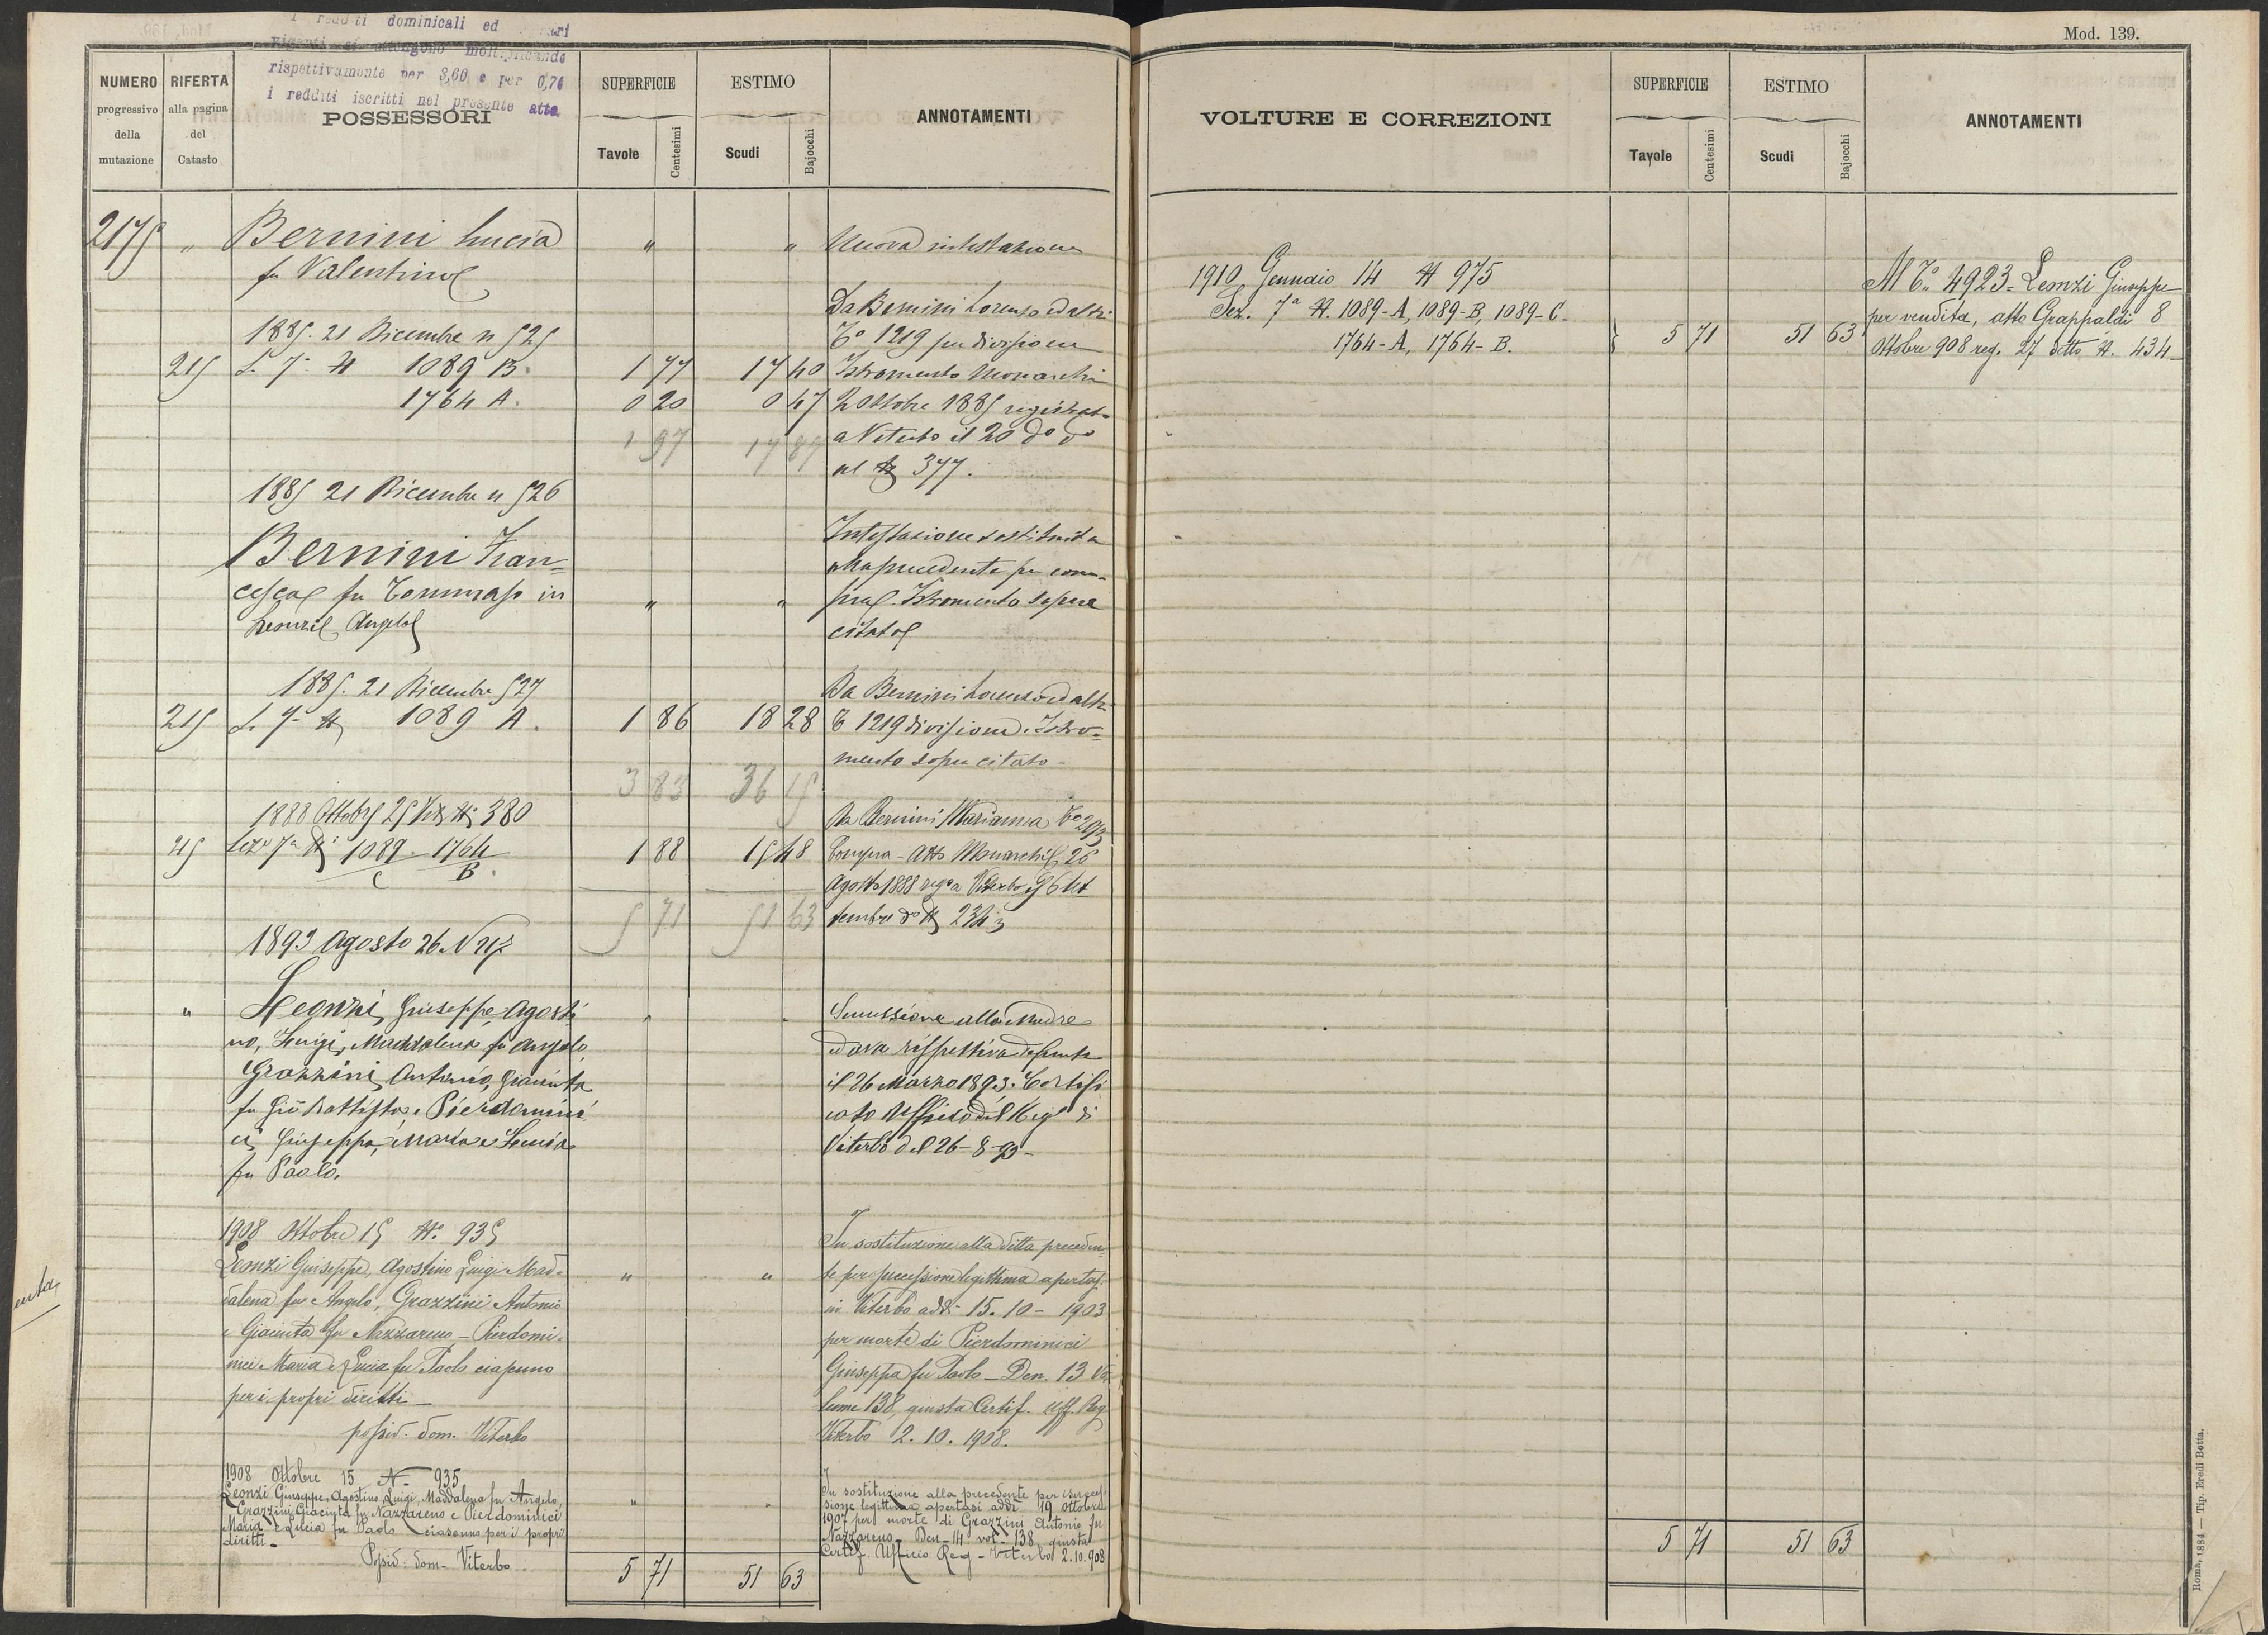 Mod. 139.
I redditi dominicali ed
vigenti si ottengono moltiplicando
rispettivamente per 3,60 e per 0,74
i redditi iscritti nel presente atto
NUMERO progressivo della mutazione
RIFERTA alla pagina del Catasto
POSSESSORI
SUPERFICIE
Tavole Centesimi
ESTIMO
Scudi Bajocchi
ANNOTAMENTI
2175 " Bernini Lucia " " Nuova intestazione
fu Valentino
Da Bernini Lorenzo ed altri
1885. 21 Dicembre n 525 To 1219 per divisione
215 S. 7a N 1089 B. 1 77 17 40 Istromento Monarchi
1764 A. 0 20 0 47 2 Ottobre 1885 registrato
1 97 17 87 a Viterbo il 20 do do
al N 377.
1885 21 Dicembre n 526
Intestazione sostituita
Bernini Fran= alla precedente per com-
cesca fu Tommaso in " " pra. Istromento sopra
Leonzi Angelo citato
1885. 21 Dicembre 527 Da Bernini Lorenzo ed altri
215 S. 7a N 1089 A. 1 86 18 28 T 1219 divisione. Istro=
mento sopra citato-
3 83 36 15
1888 Ottobre 25 N 380 Da Bernini Marianna To 2093
215 Sez. 7a N 1089 C 1764 B. 1 88 15 48 Compra - Atto Monarchi 26
Agosto 1888 rega Viterbo 6 Set
5 71 51 63 tembre do N 234
1893 Agosto 26 N
" Leonzi, Giuseppe, Agosti " " Successione alla Madre
no, Luigi, Maddalena fu Angelo, ed ava rispettiva defunta
Grazzini, Antonio, Giacinta il 26 Marzo 1893. Certifi
fu Gio Battista e Pierdomini cato Ufficio del Reg di
ci, Giuseppa, Maria e Lucia Viterbo del 26-8-93-
fu Paolo.
1908 Ottobre 15 No. 935 In sostituzione alla ditta preceden
Leonzi Giuseppe, Agostino Luigi Mad= " " te per successione legittima apertasi
dalena fu Angelo, Grazzini Antonio in Viterbo addì 15.10-1903
e Giacinta fu Nazzareno - Pierdomi- per morte di Pierdominici
nici Maria e Lucia fu Paolo ciascuno Giuseppa fu Paolo - Den. 13 Vo
per i propri diritti - lume 138, giusta Certif. Uff. Reg
possid. dom. Viterbo Viterbo 2.10.1908.
1908 Ottobre 15 N. 935 In sostituzione alla precedente per succes
Leonzi Giuseppe, Agostino, Luigi, Maddalena fu Angelo, " " sione legittima apertasi addì 19 Ottobre
Grazzini Giacinta fu Nazzareno e Pierdominici 1907 per morte di Grazzini Antonio fu
Maria e Lucia fu Paolo ciascuno per i propri Nazzareno - Den - 14 vol - 138 giusta
diritti - Certif. Ufficio Reg - Viterbo 2.10.908
Possid: dom- Viterbo
5 71 51 63
VOLTURE E CORREZIONI
SUPERFICIE
Tavole Centesimi
ESTIMO
Scudi Bajocchi
ANNOTAMENTI
1910 Gennaio 14 N 975 Al To. 4923 = Leonzi Giuseppe
Sez. 7a N. 1089-A, 1089-B, 1089-C- per vendita, atto Grappaldi 8
1764-A, 1764-B. } 5 71 51 63 Ottobre 908 reg. 27 detto N. 434-
5 71 51 63
Roma, 1884 — Tip. Eredi Botta.